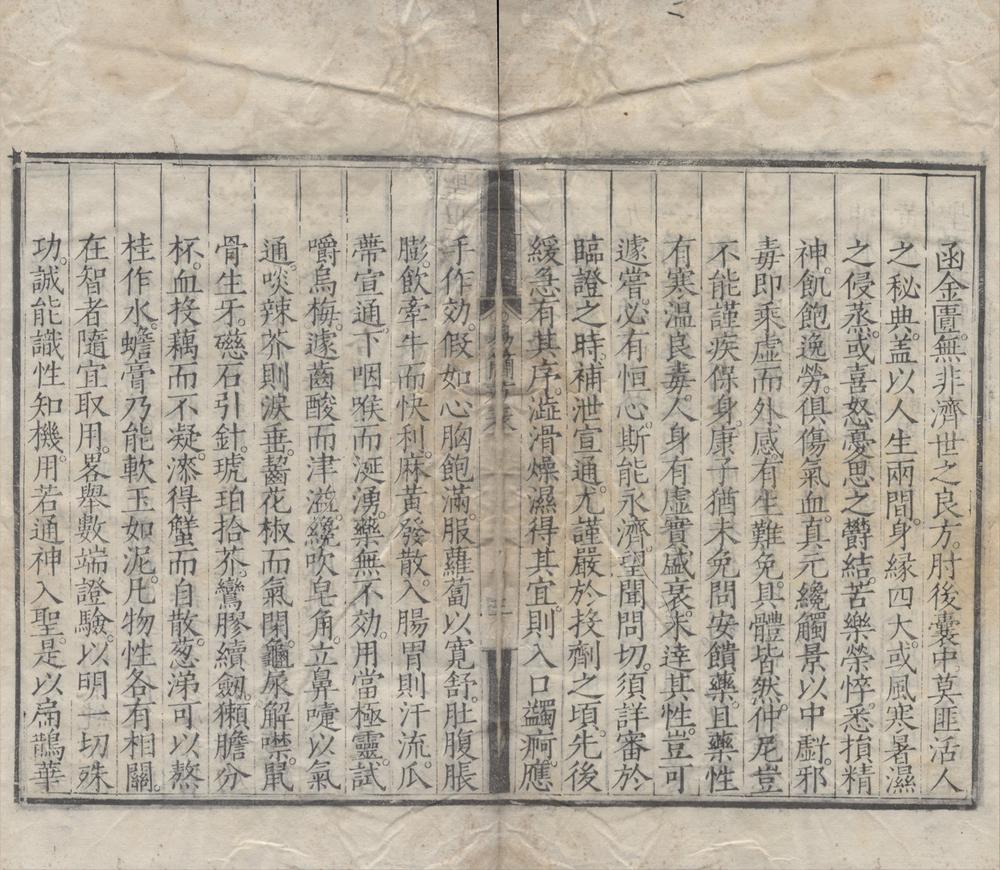 函金匱。無非濟世之良方。肘後囊中。莫匪活人
之秘典。蓋以人生兩間。身緣四大。或風寒暑濕
之侵蒸。或喜怒憂思之欝結。苦樂榮悴。悉損精
神。飢飽逸勞。俱傷氣血。真元纔觸景以中虧。邪
毒即乘虛而外感。有生難免。具體皆然。仲尼豈
不能謹疾保身。康子猶未免問安饋藥。且藥性
有寒溫良毒。人身有虛實盛衰。未達其性。豈可
遽嘗。必有恒心。斯能永濟。聖聞問切。須詳審於
臨證之時。補泄宣通。尤謹嚴於投劑之頃。先後
緩急有其序。澁滑燥濕得其宜。則入口蠲痾。應
手作効。假如心胸飽滿。服蘿蔔以寬舒。肚腹脹
膨。飲牽牛而快利。麻黃發散。入腸胃則汗流。瓜
蒂宣通。下咽喉而涎湧。藥無不効。用當極靈。試
嚼烏梅。遽齒酸而津滋。纔吹皂角。立鼻嚏以氣
通。啖辣芥則淚垂。齧花椒而氣閉。龜尿解噤。鼠
骨生牙。磁石引針。琥珀拾芥。鸞膠續劔。獺膽分
杯。血投藕而不凝。漆得蟹而自散。葱涕可以熬
桂作水。蟾膏乃能軟玉如泥。凡物性各有相關。
在智者隨宜取用。畧舉數端證驗。以明一切殊
功。誠能識性知機。用若通神入聖。是以扁鵲華